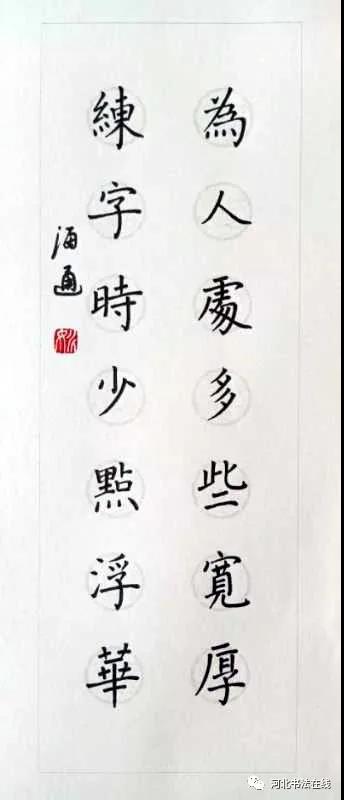 為人處多些寬厚
練字時少點浮華
海通
河北书法在线